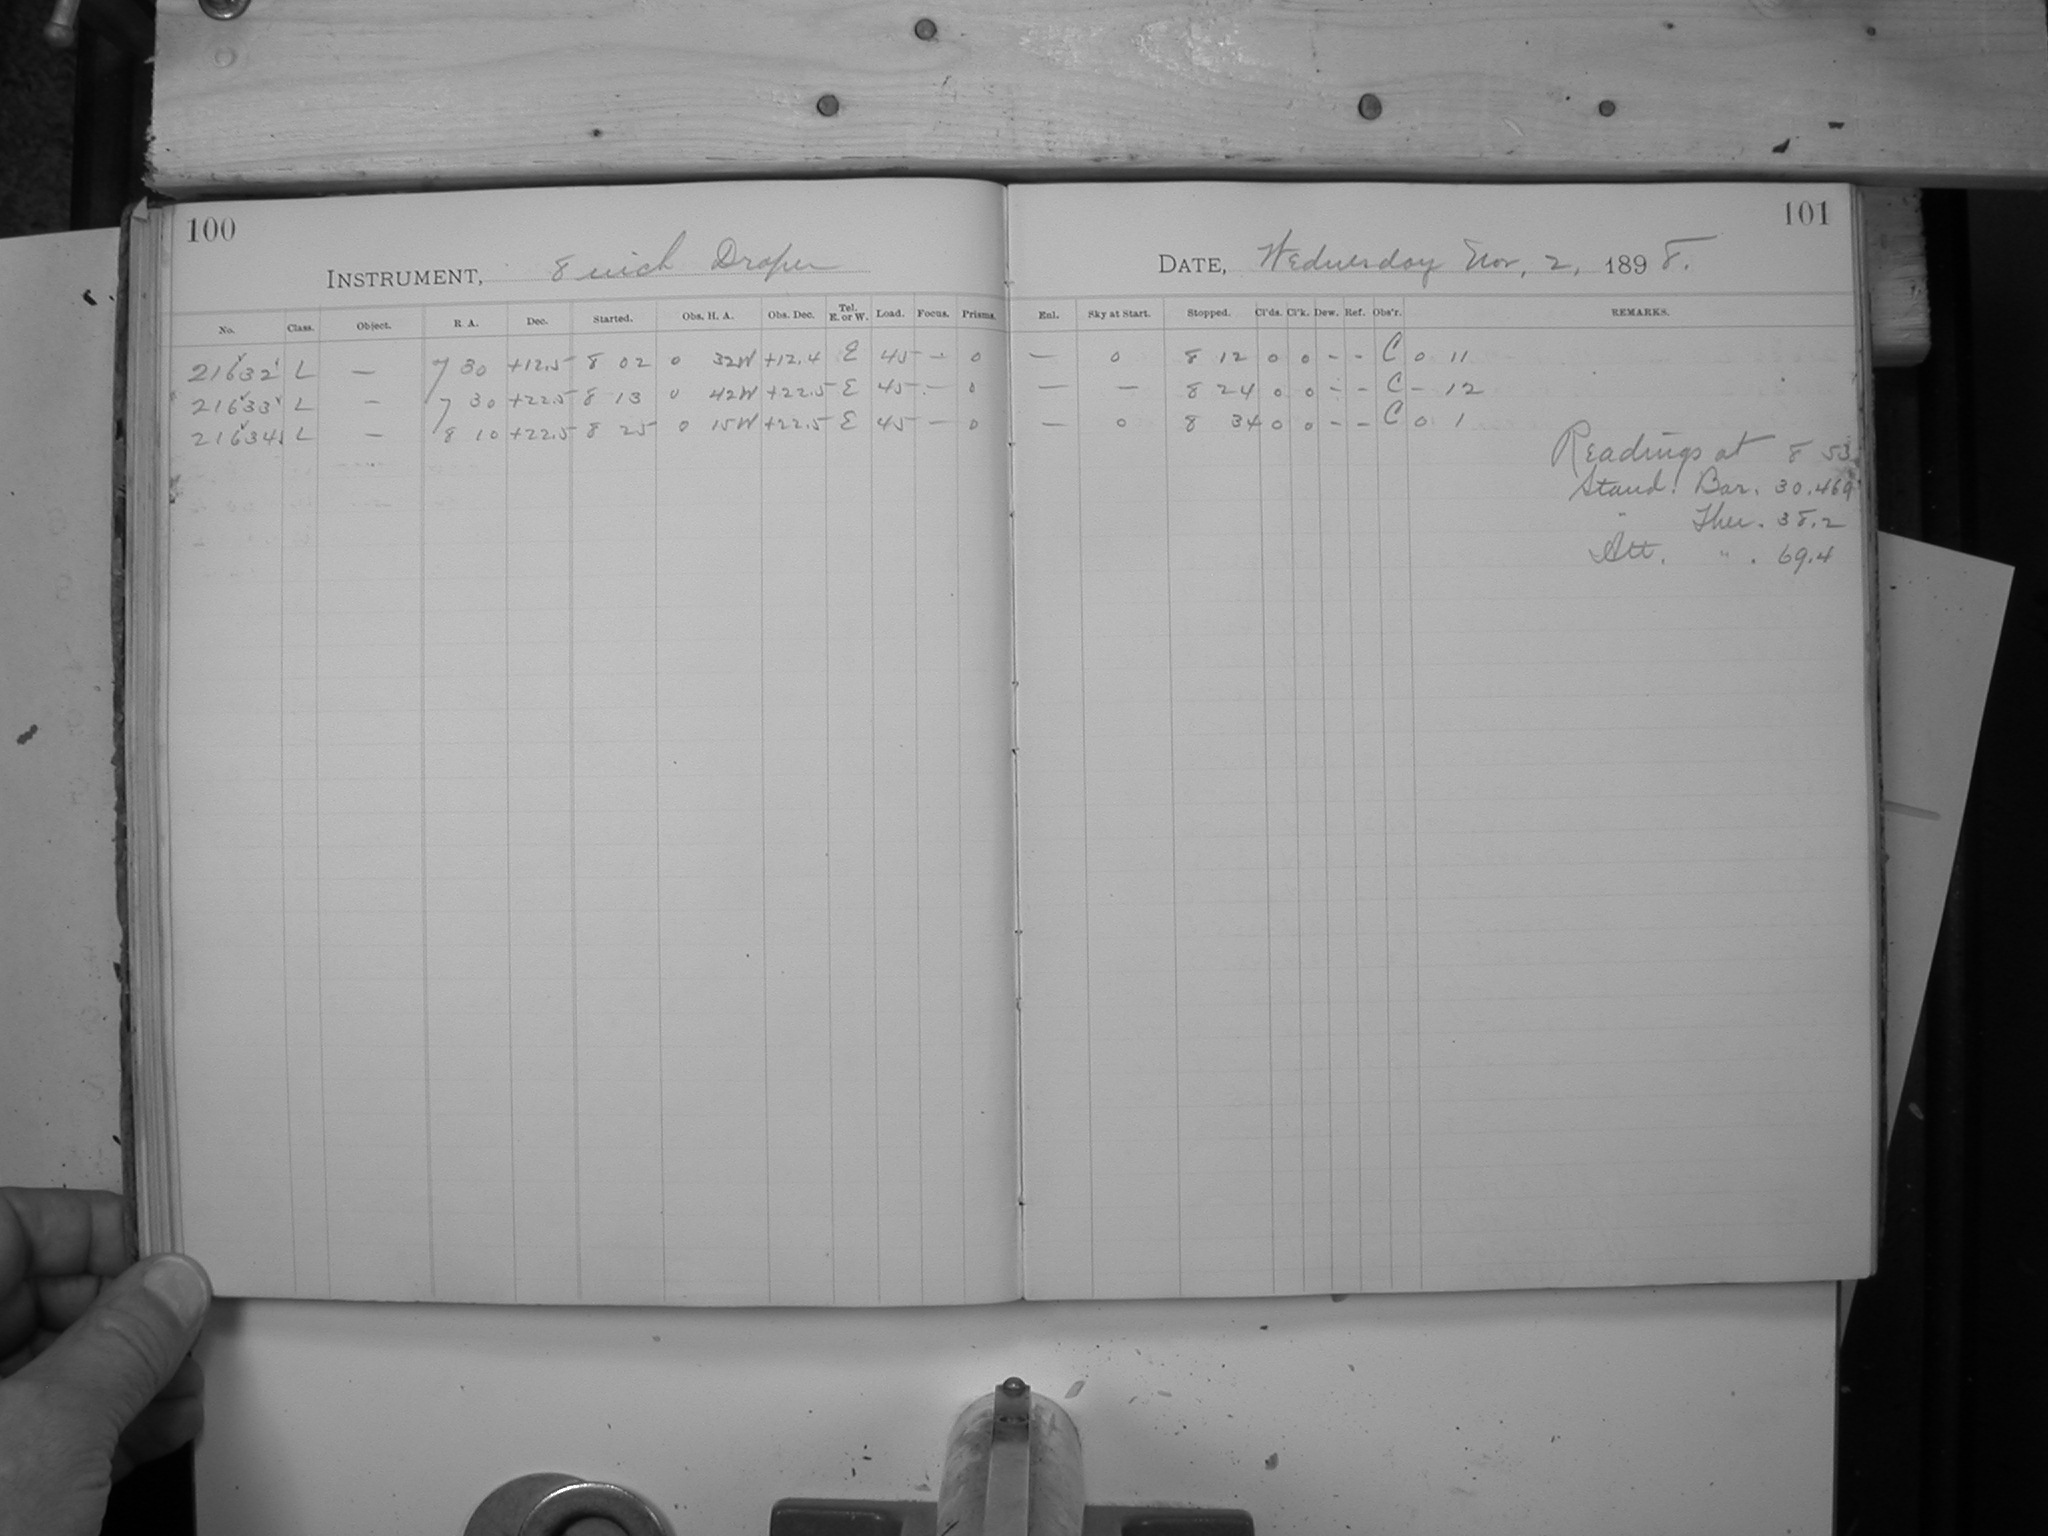 100
INSTRUMENT, 8 inch Draper
No. Class. Object. R. A. Dec. Started. Obs. H. A. Obs. Dec. Tel. E. or W. Load. Focus. Prisms.
21632 L — 7 30 +12.5 8 02 0 32W +12.4 E 45 — 0
21633 L — 7 30 +22.5 8 13 0 42W +22.5 E 45 — 0
21634 L — 8 10 +22.5 8 25 0 15W +22.5 E 45 — 0
101
DATE, Wednesday Nov, 2, 1898.
Enl. Sky at Start. Stopped. Cl'ds. Cl'k. Dew. Ref. Obs'r. REMARKS.
— 0 8 12 0 0 - - C 0 11
— — 8 24 0 0 - - C - 12
— 0 8 34 0 0 - - C 0 1
Readings at 8 53
Stand. Bar. 30.469
" Ther. 38.2
Att. " . 69.4